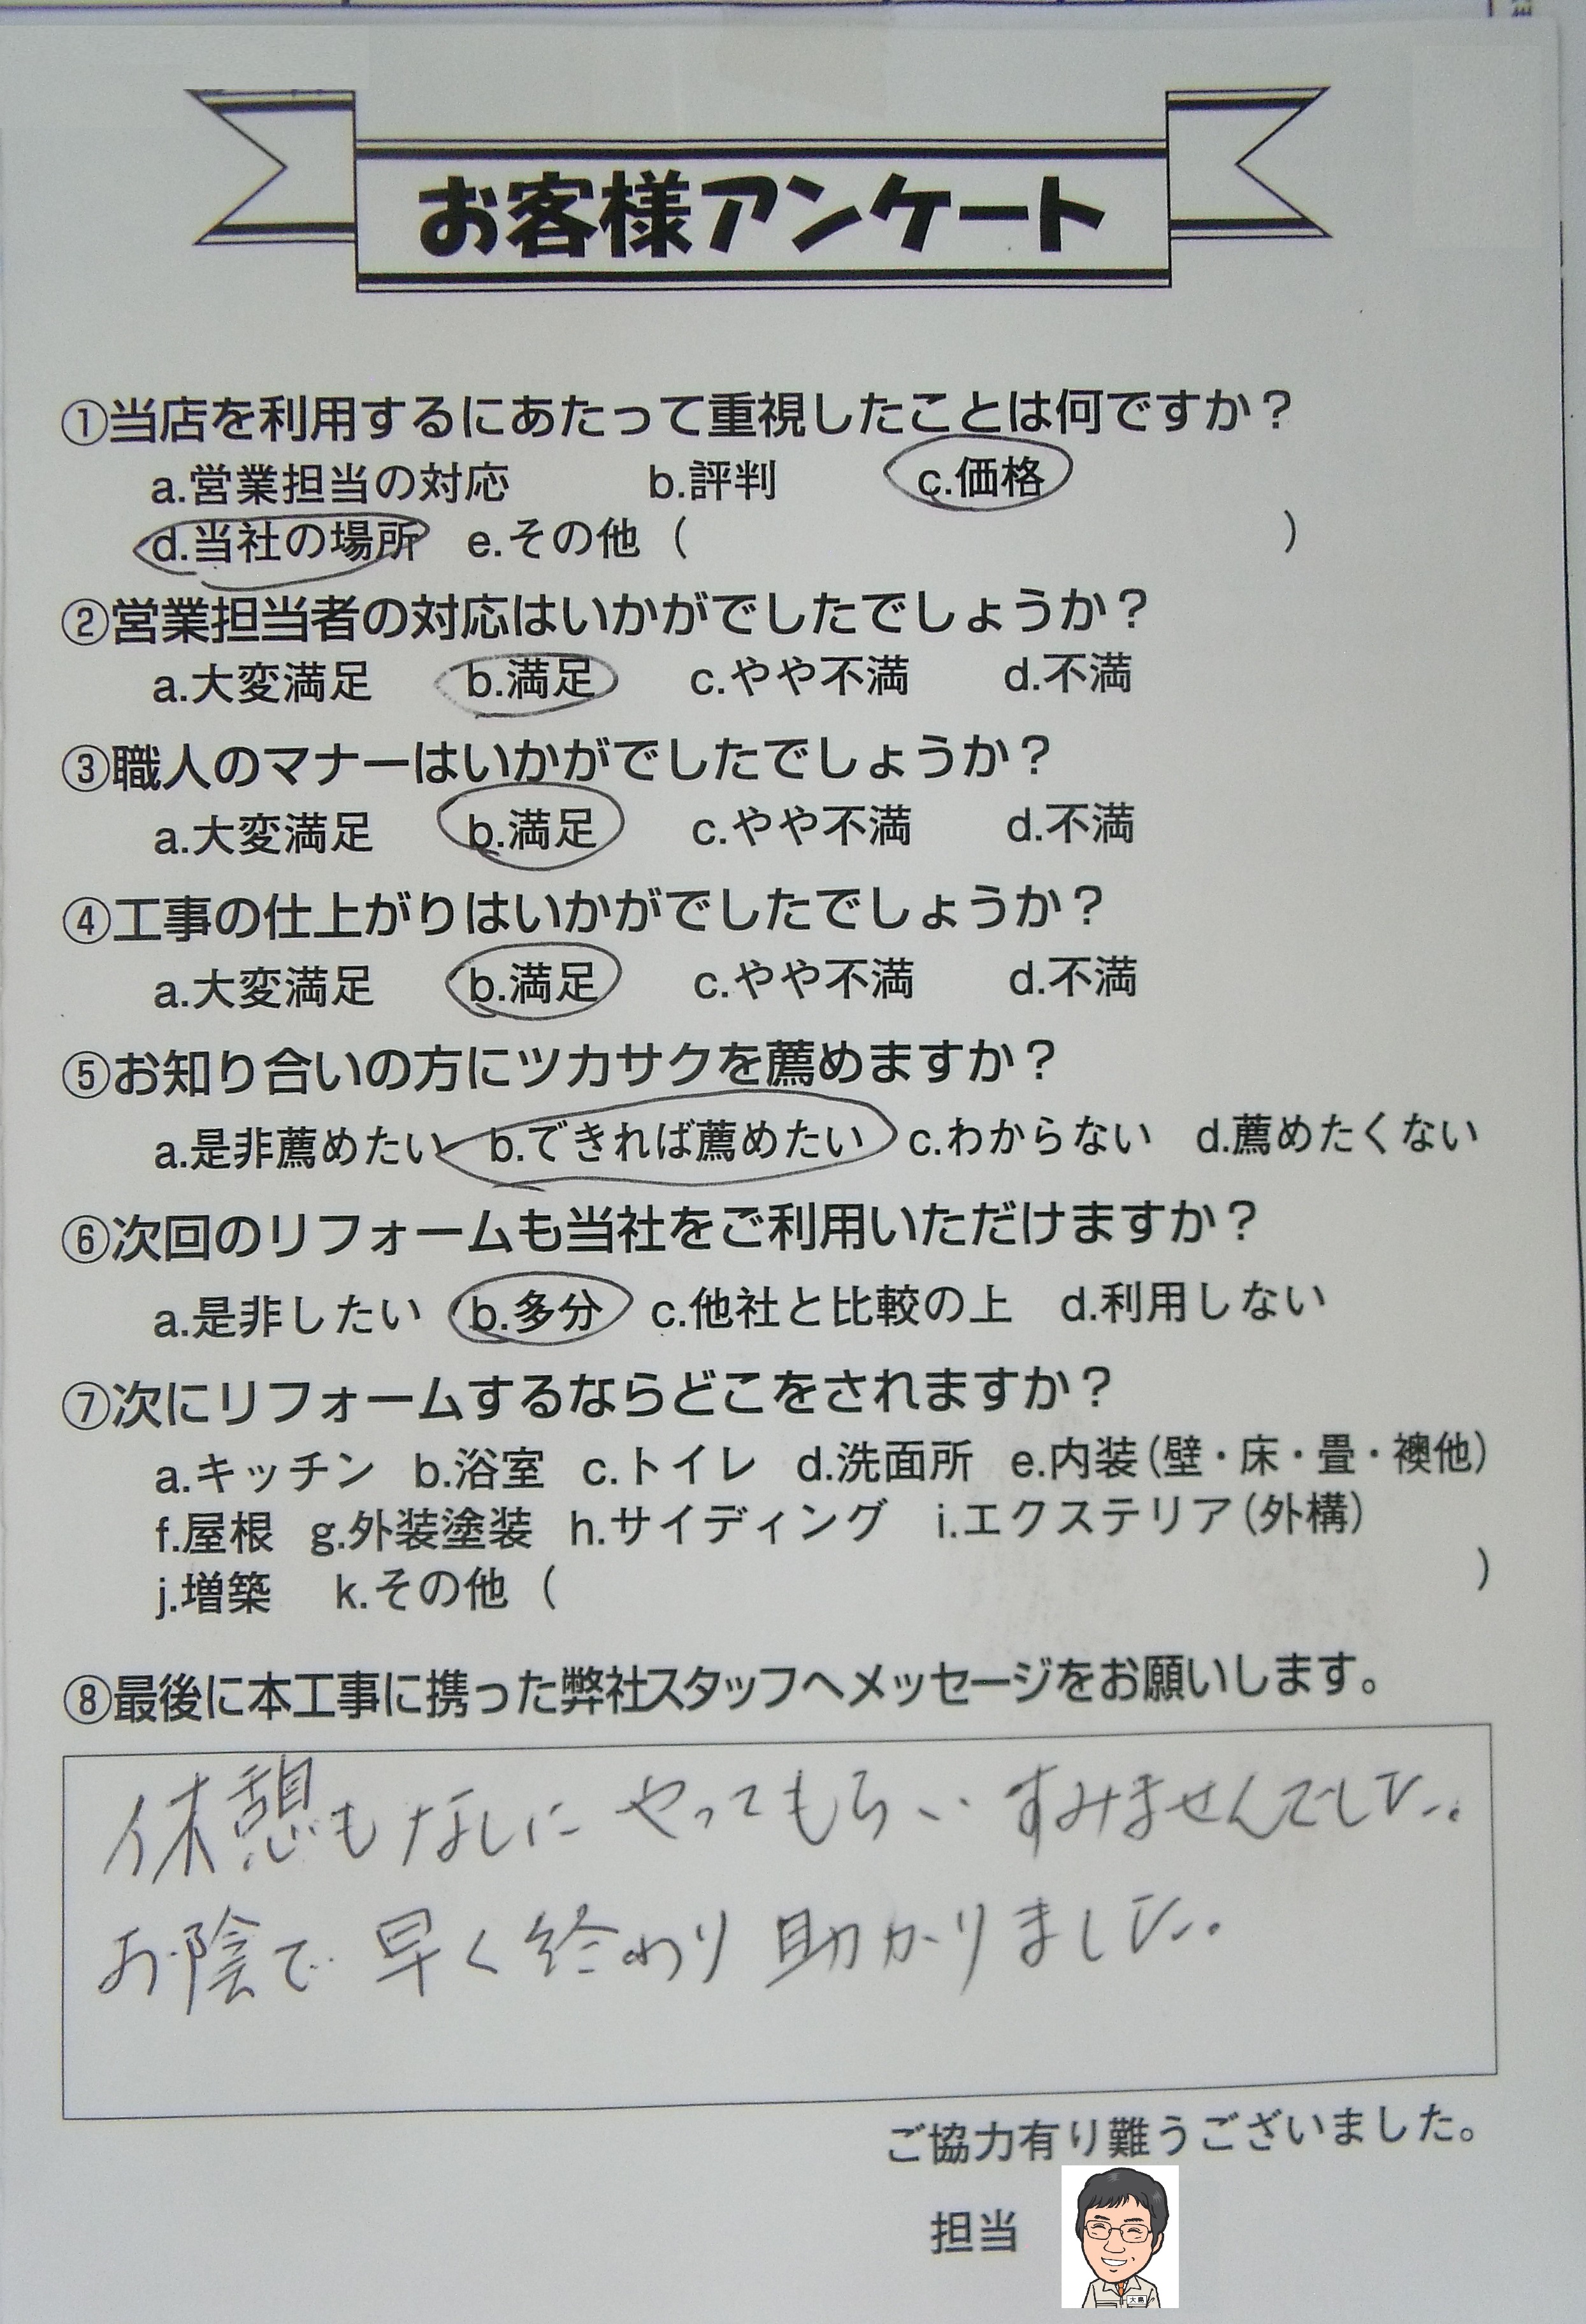 お客様アンケート
①当店を利用するにあたって重視したことは何ですか？
a.営業担当の対応 b.評判 c.価格
d.当社の場所 e.その他（ ）
②営業担当者の対応はいかがでしたでしょうか？
a.大変満足 b.満足 c.やや不満 d.不満
③職人のマナーはいかがでしたでしょうか？
a.大変満足 b.満足 c.やや不満 d.不満
④工事の仕上がりはいかがでしたでしょうか？
a.大変満足 b.満足 c.やや不満 d.不満
⑤お知り合いの方にツカサクを薦めますか？
a.是非薦めたい b.できれば薦めたい c.わからない d.薦めたくない
⑥次回のリフォームも当社をご利用いただけますか？
a.是非したい b.多分 c.他社と比較の上 d.利用しない
⑦次にリフォームするならどこをされますか？
a.キッチン b.浴室 c.トイレ d.洗面所 e.内装（壁・床・畳・襖他）
f.屋根 g.外装塗装 h.サイディング i.エクステリア（外構）
j.増築 k.その他（ ）
⑧最後に本工事に携った弊社スタッフへメッセージをお願いします。
休憩もなしにやってもらい すみませんでした。
お陰で 早く終わり 助かりました。
ご協力有り難うございました。
担当